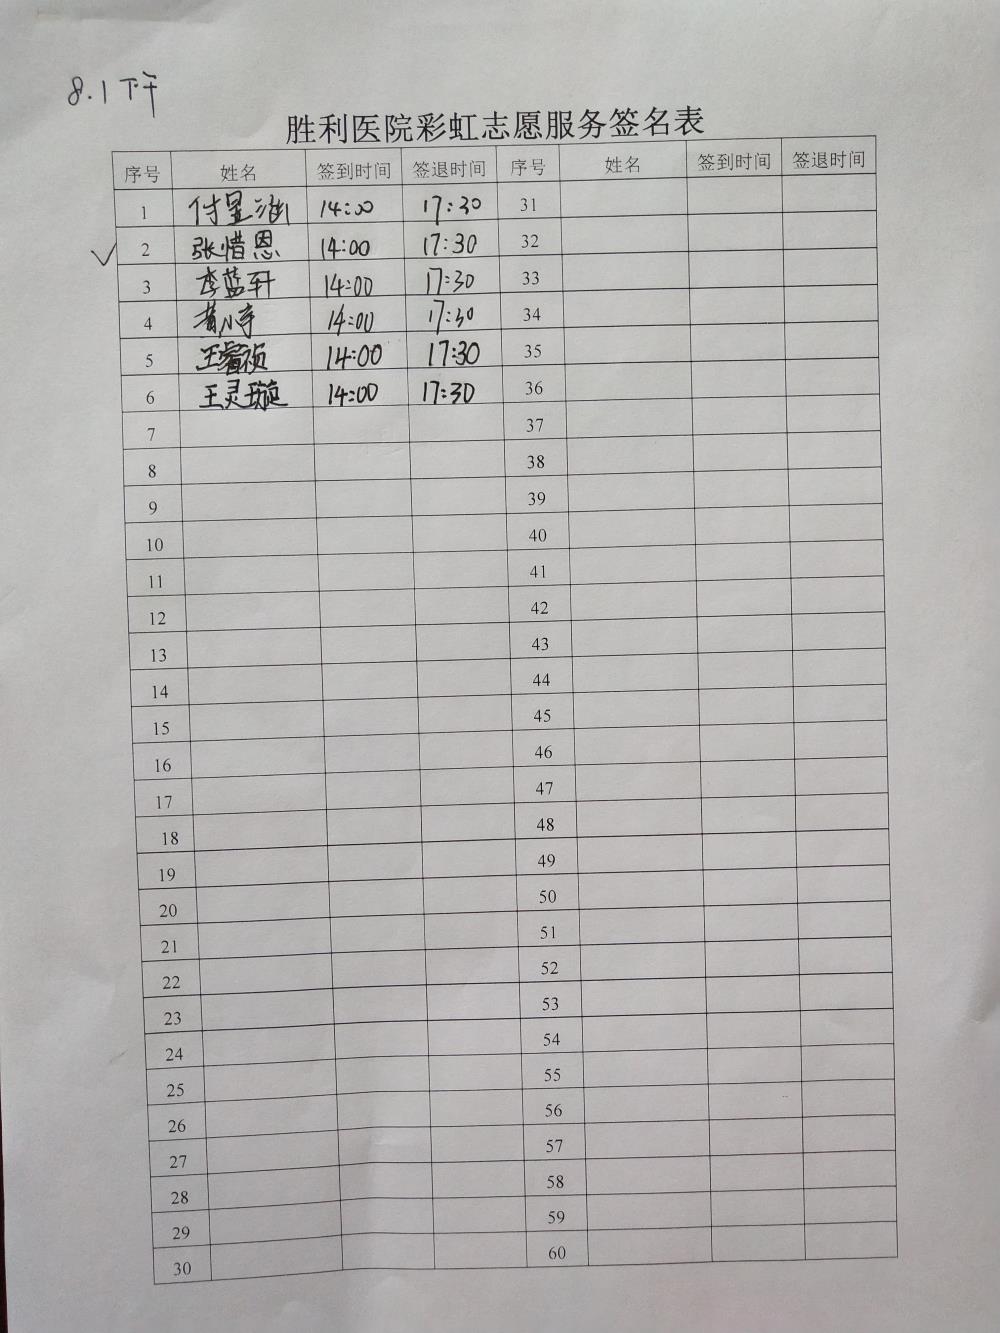 8.1 下午
胜利医院彩虹志愿服务签名表
序号 姓名 签到时间 签退时间 序号 姓名 签到时间 签退时间
1 付呈 14:00 17:30 31
2 张惜恩 14:00 17:30 32
3 李蓝轩 14:00 17:30 33
4 黄 14:00 17:30 34
5 王睿祯 14:00 17:30 35
6 王灵璇 14:00 17:30 36
7 37
8 38
9 39
10 40
11 41
12 42
13 43
14 44
15 45
16 46
17 47
18 48
19 49
20 50
21 51
22 52
23 53
24 54
25 55
26 56
27 57
28 58
29 59
30 60